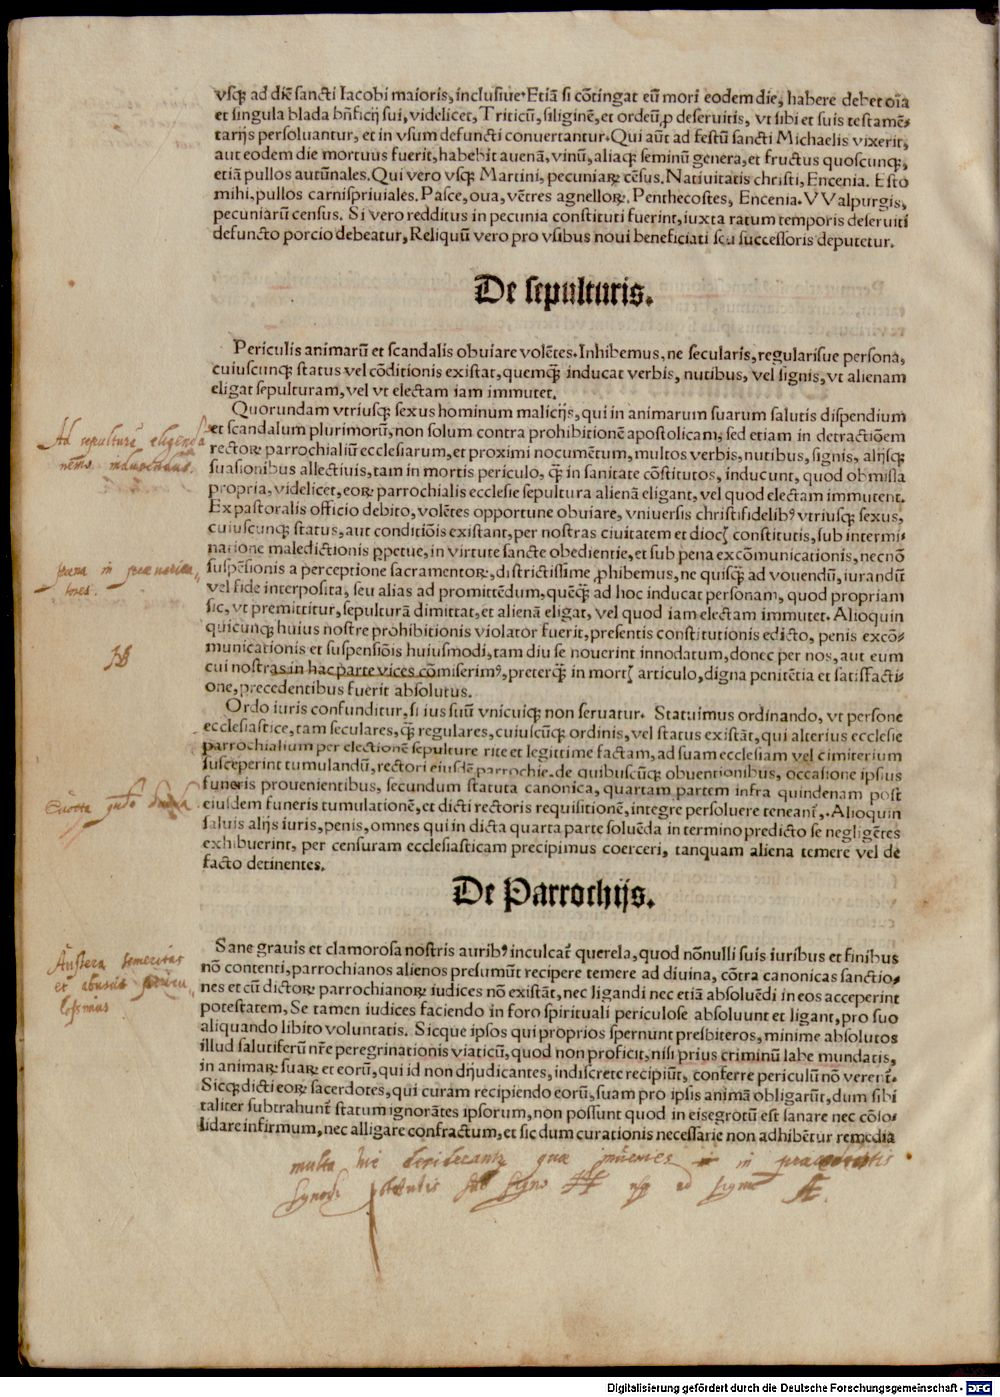 vſq̃ ad diẽ ſancti Iacobi maioris, incluſiue. Etiã ſi cõtingat eũ mori eodem die, habere debet oĩa
et ſingula blada bñficij ſui, videlicet, Triticũ, ſiliginẽ, et ordeũ, ꝓ deſeruitis, vt ſibi et ſuis teſtamẽ-
tarijs perſoluantur, et in vſum defuncti conuertantur. Qui aũt ad feſtũ ſancti Michaelis vixerit,
aut eodem die mortuus fuerit, habebit auenã, vinũ, aliaqꝫ ſeminũ genera, et fructus quoſcunqꝫ,
etiã pullos autũnales. Qui vero vſqꝫ Martini, pecuniaꝝ cẽſus. Natiuitatis chriſti, Encenia. Eſto
mihi, pullos carniſpriuiales. Paſce, oua, vẽtres agnelloꝝ. Penthecoſtes, Encenia. VValpurgis,
pecuniarũ cenſus. Si vero redditus in pecunia conſtituti fuerint, iuxta ratum temporis deſeruiti
defuncto porcio debeatur, Reliquũ vero pro vſibus noui beneficiati ſeu ſucceſſoris deputetur.
De ſepulturis.
Periculis animarũ et ſcandalis obuiare volẽtes. Inhibemus, ne ſecularis, regulariſue perſona,
cuiuſcunqꝫ ſtatus vel cõditionis exiſtat, quemqꝫ̃ inducat verbis, nutibus, vel ſignis, vt alienam
eligat ſepulturam, vel vt electam iam immutet.
Quorundam vtriuſqꝫ ſexus hominum malicijs, qui in animarum ſuarum ſalutis diſpendium
et ſcandalum plurimorũ, non ſolum contra prohibitionẽ apoſtolicam, ſed etiam in detractiõem
rectoꝝ parrochialiũ eccleſiarum, et proximi nocumẽtum, multos verbis, nutibus, ſignis, alijſqꝫ
ſuaſionibus allectiuis, tam in mortis periculo, qꝫ̃ in ſanitate cõſtitutos, inducunt, quod obmiſſa
propria, videlicet, eoꝝ parrochialis eccleſie ſepultura alienã eligant, vel quod electam immutent.
Ex paſtoralis officio debito, volẽtes opportune obuiare, vniuerſis chriſtifidelibꝰ vtriuſqꝫ ſexus,
cuiuſcunqꝫ ſtatus, aut conditiõis exiſtant, per noſtras ciuitatem et dioc̃ conſtitutis, ſub intermi-
natione maledictionis ꝑpetue, in virtute ſancte obedientie, et ſub pena excõmunicationis, necnõ
ſuſpẽſionis a perceptione ſacramentoꝝ, diſtrictiſſime ꝓhibemus, ne quiſqꝫ̃ ad vouendũ, iurandũ
vel fide interpoſita, ſeu alias ad promittẽdum, quẽqꝫ̃ ad hoc inducat perſonam, quod propriam
ſic, vt premittitur, ſepulturã dimittat, et alienã eligat, vel quod iam electam immutet. Alioquin
quicunqꝫ huius noſtre prohibitionis violator fuerit, preſentis conſtitutionis edicto, penis excõ-
municationis et ſuſpenſiõis huiuſmodi, tam diu ſe nouerint innodatum, donec per nos, aut eum
cui noſtras in hac parte vices cõmiſerimꝰ, preterqꝫ̃ in mortꝭ articulo, digna penitẽtia et ſatiſfacti-
one, precedentibus fuerit abſolutus.
Ordo iuris confunditur, ſi ius ſuũ vnicuiqꝫ non ſeruatur. Statuimus ordinando, vt perſone
eccleſiaſtice, tam ſeculares, qꝫ̃ regulares, cuiuſcũqꝫ ordinis, vel ſtatus exiſtãt, qui alterius eccleſie
parrochialium per electionẽ ſepulture rite et legittime factam, ad ſuam eccleſiam vel cimiterium
ſuſceperint tumulandũ, rectori eiuſdẽ parrochie, de quibuſcũqꝫ obuentionibus, occaſione ipſius
funeris prouenientibus, ſecundum ſtatuta canonica, quartam partem infra quindenam poſt
eiuſdem funeris tumulationẽ, et dicti rectoris requiſitionẽ, integre perſoluere teneant̃. Alioquin
ſaluis alijs iuris, penis, omnes qui in dicta quarta parte ſoluẽda in termino predicto ſe negligẽtes
exhibuerint, per cenſuram eccleſiaſticam precipimus coerceri, tanquam aliena temere vel de
facto detinentes.
De Parrochijs.
Sane grauis et clamoroſa noſtris auribꝰ inculcat̃ querela, quod nõnulli ſuis iuribus et finibus
nõ contenti, parrochianos alienos preſumũt recipere temere ad diuina, cõtra canonicas ſanctio-
nes et cũ dictoꝝ parrochianoꝝ iudices nõ exiſtãt, nec ligandi nec etiã abſoluẽdi in eos acceperint
poteſtatem, Se tamen iudices faciendo in foro ſpirituali periculoſe abſoluunt et ligant, pro ſuo
aliquando libito voluntatis. Sicque ipſos qui proprios ſpernunt preſbiteros, minime abſolutos
illud ſalutiferũ nr̃e peregrinationis viaticũ, quod non proficit, niſi prius criminũ labe mundatis,
in animaꝝ ſuaꝝ et eorũ, qui id non dijudicantes, indiſcrete recipiũt, conferre periculũ nõ verent̃.
Sicqꝫ dicti eoꝝ ſacerdotes, qui curam recipiendo eorũ, ſuam pro ipſis animã obligarũt, dum ſibi
taliter ſubtrahunt̃ ſtatum ignorãtes ipſorum, non poſſunt quod in eis egrotũ eſt ſanare nec cõſo-
lidare infirmum, nec alligare confractum, et ſic dum curationis neceſſarie non adhibẽtur remedia
Ad sepulturã eligendã
nemo inducendus.
pœna in
NB
Quarta
Austera temeritas
et abusus
multa hic desiderantur quæ invenies in præcedentis
synodi statutis sub signo
Digitalisierung gefördert durch die Deutsche Forschungsgemeinschaft - DFG